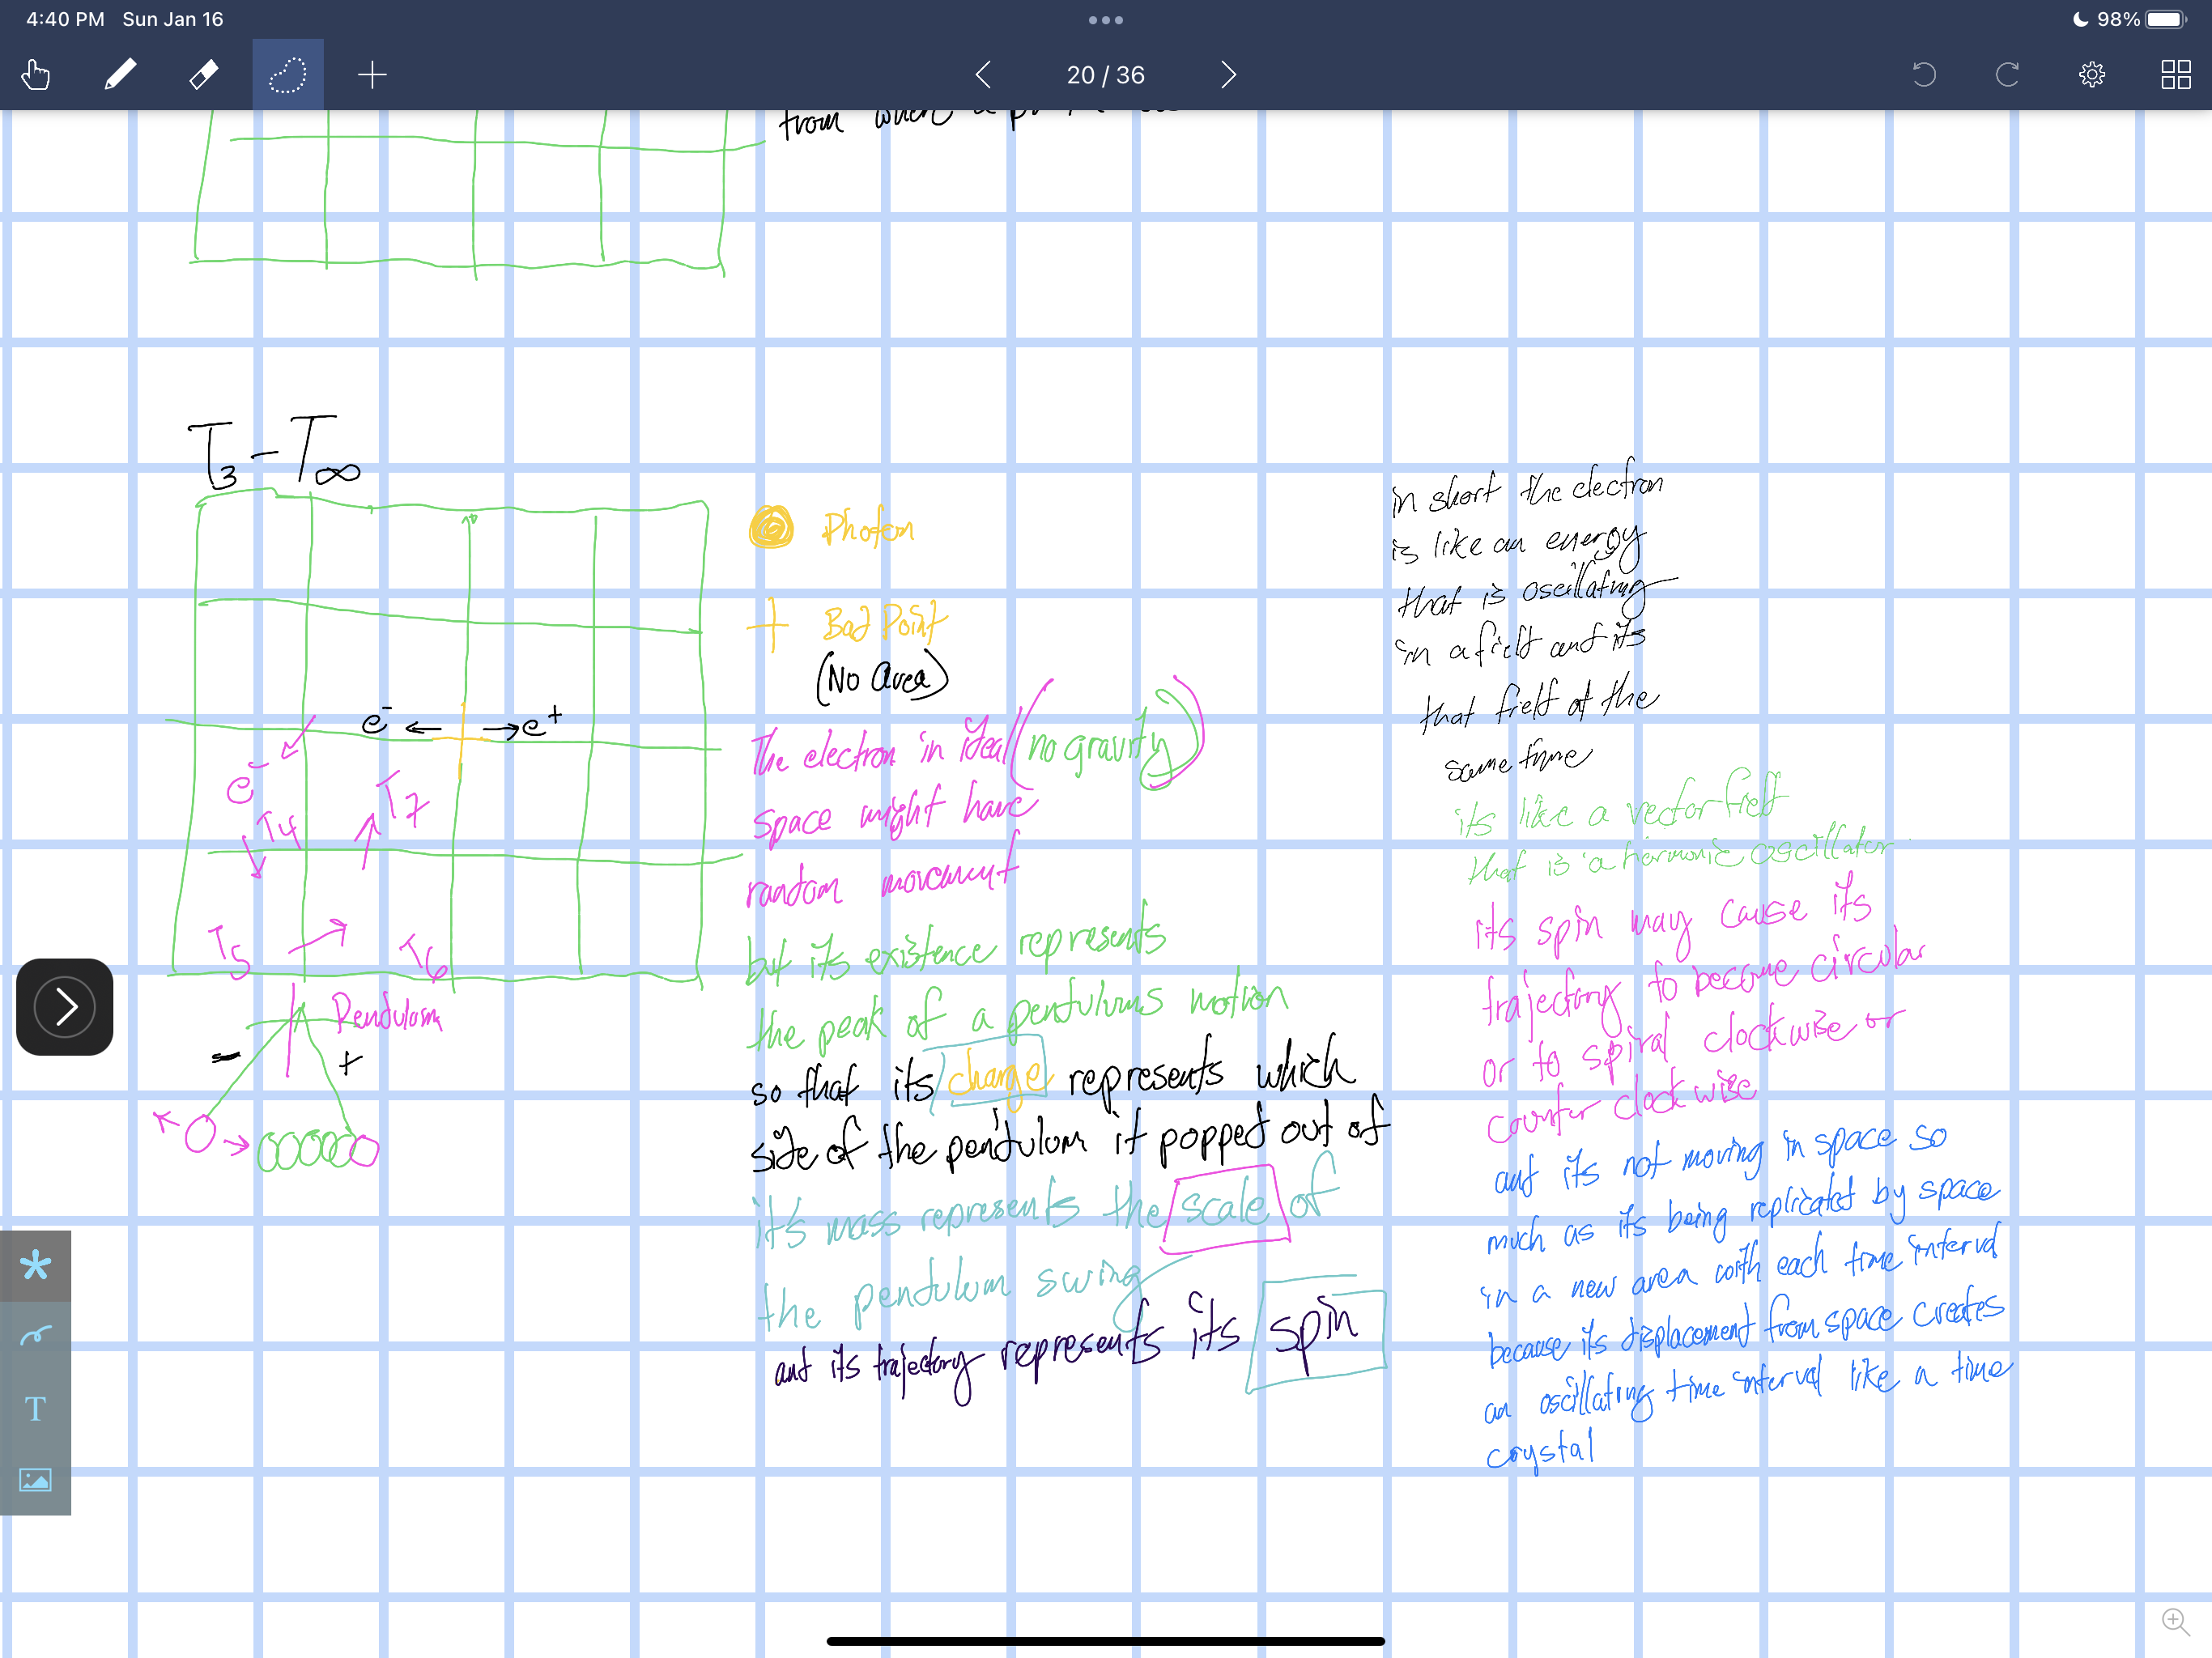 4:40 PM Sun Jan 16
98%
20 / 36
from when a
T3 - T∞
Photon
Bad Point
(No Area)
e- ← → e+
e-
T4
T7
T5
T6
Pendulum
-
+
The electron in ideal (no gravity)
space might have
random movement
but its existence represents
the peak of a pendulums motion
so that its charge represents which
side of the pendulum it popped out of
it's mass represents the scale of
the pendulum swing
and its trajectory represents its spin
in short the electron
is like an energy
that is oscillating
in a field and its
that field at the
same time
its like a vector field
that is a harmonic oscillator
its spin may cause its
trajectory to become circular
or to spiral clockwise or
counter clockwise
and its not moving in space so
much as its being replicated by space
in a new area with each time interval
because its displacement from space creates
an oscillating time interval like a time
crystal
T